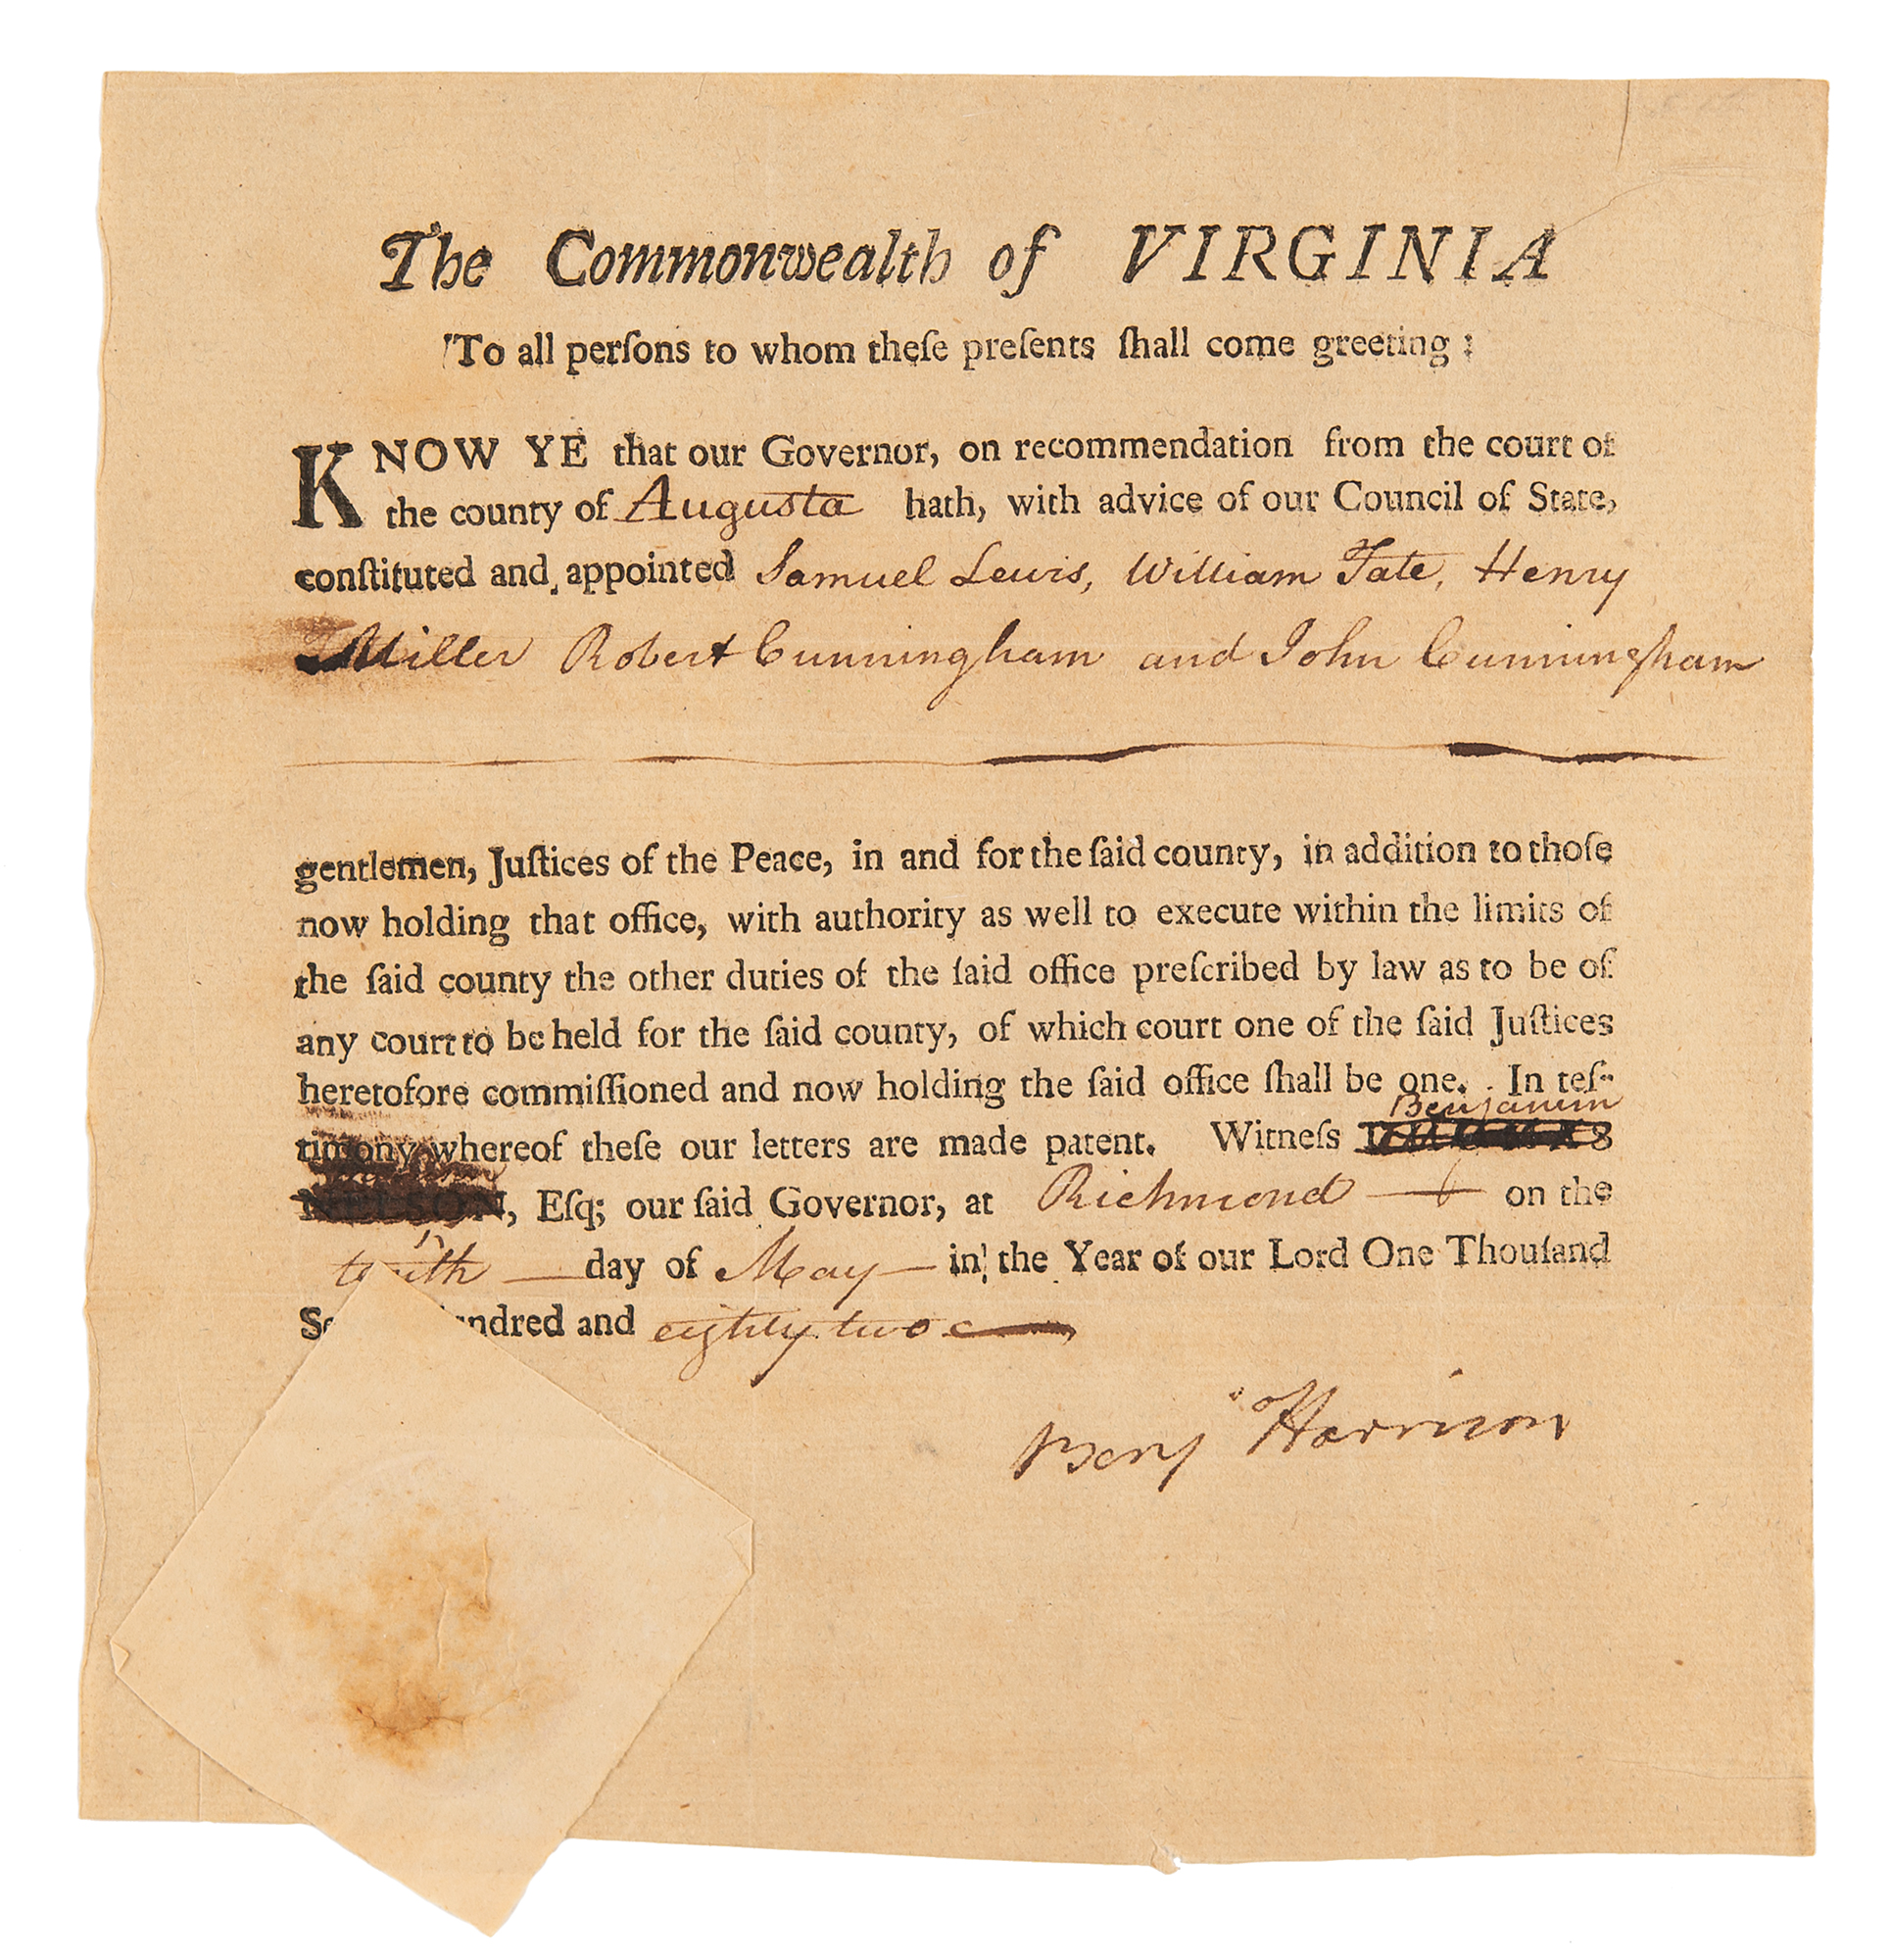 The Commonwealth of VIRGINIA
To all perſons to whom theſe preſents ſhall come greeting:
KNOW YE that our Governor, on recommendation from the court of
the county of Augusta hath, with advice of our Council of State,
conſtituted and appointed Samuel Lewis, William Tate, Henry
Miller Robert Cunningham and John Cunningham
gentlemen, Juſtices of the Peace, in and for the ſaid county, in addition to thoſe
now holding that office, with authority as well to execute within the limits of
the ſaid county the other duties of the ſaid office preſcribed by law as to be of
any court to be held for the ſaid county, of which court one of the ſaid Juſtices
heretofore commiſſioned and now holding the ſaid office ſhall be one. In teſ-
Benjamin
timony whereof theſe our letters are made patent. Witneſs THOMAS
NELSON, Eſq; our ſaid Governor, at Richmond on the
day of May in the Year of our Lord One Thouſand
and eighty two
Benj Harrison